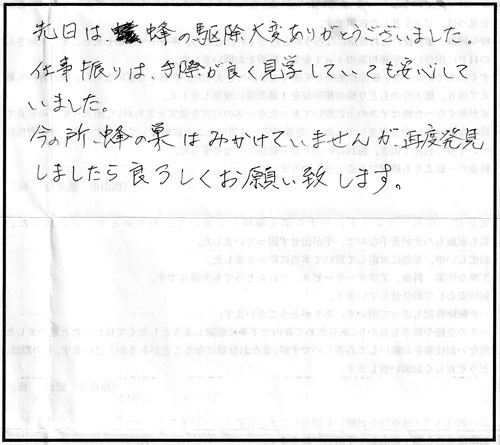 先日は、蜂の駆除大変ありがとうございました。
仕事振りは、手際が良く見学していても安心して
いました。
今の所、蜂の巣はみかけていませんが、再度発見
しましたら良ろしくお願い致します。